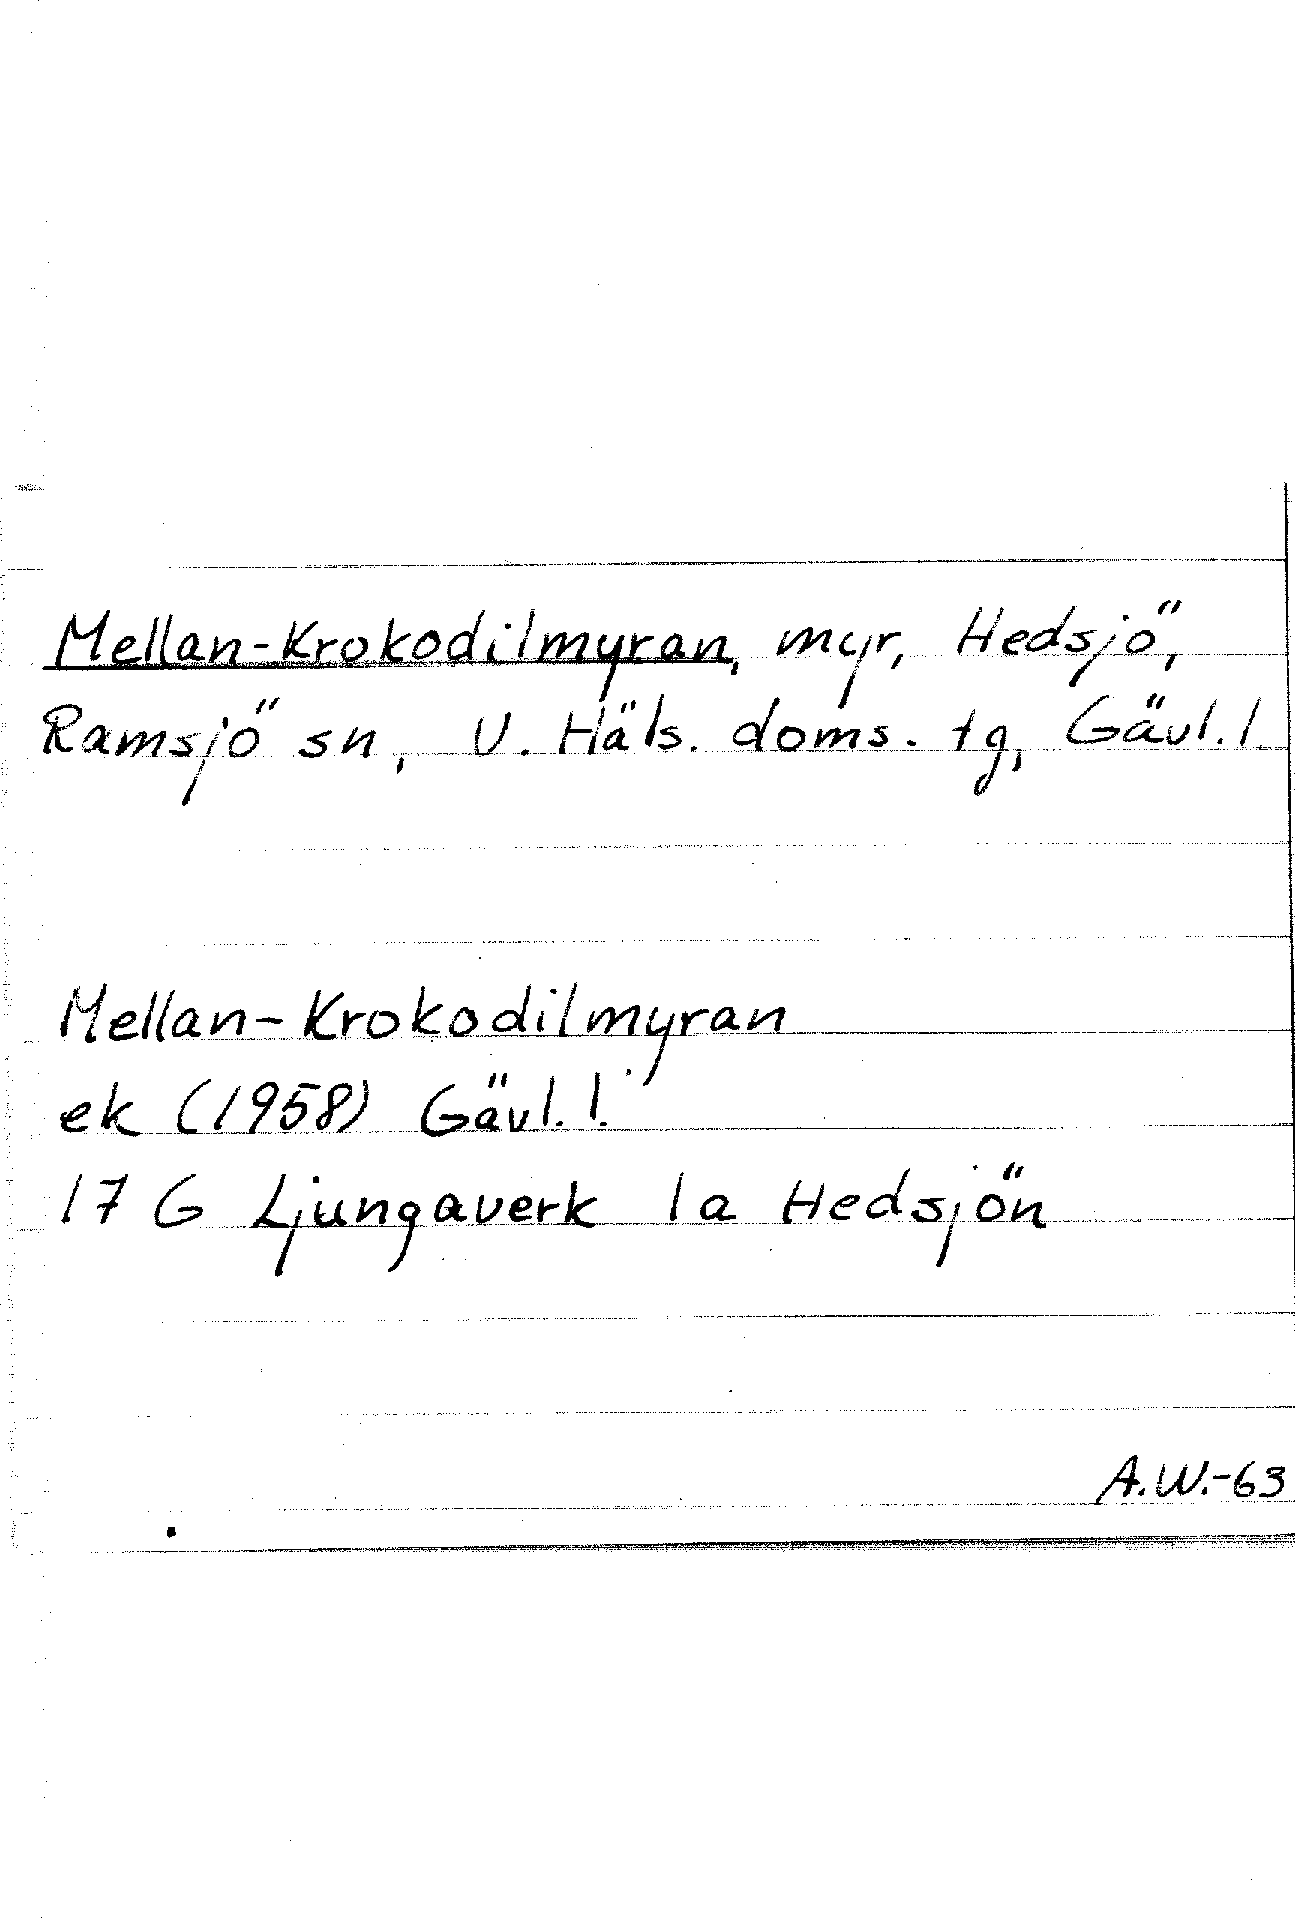 Mellan-Krokodilmyran, myr, Hedsjö,
Ramsjö sn, V. Häls. doms. tg, Gävl. l.
Mellan-Krokodilmyran
ek (1958) Gävl. l.
17 G Ljungaverk 1a Hedsjön
A.W.-63